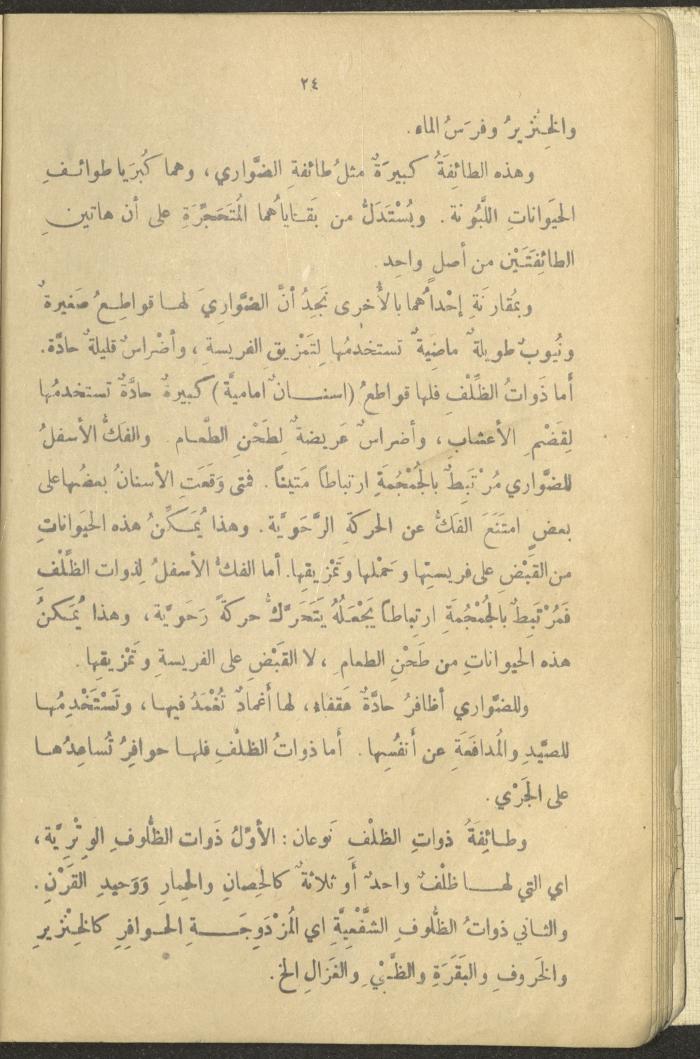 ٢٤
والخِنْزيرُ وفرَسُ الماء.
وهذه الطائِفَةُ كبيرَةٌ مثلُ طائفةِ الضَّواري، وهما كُبرَيا طوائفِ
الحيَواناتِ اللَّبُونة. ويُسْتَدَلُّ من بَقاياهُما المُتَحَجِّرَةِ على أن هاتينِ
الطائِفَتَيْن من أصلٍ واحِد
وبمُقارَنَةِ إحْداهُما بالأُخرى نَجِدُ أنَّ الضَّوارِيَ لها قواطِعُ صَغيرةٌ
ونُيوبٌ طويلةٌ ماضِيَةٌ تستخدمُها لِتَمْزيقِ الفريسةِ، وأضْراسٌ قليلةٌ حادَّة.
أما ذَواتُ الظِّلْفِ فلها قواطعُ (اسنانٌ اماميةٌ) كبيرةٌ حادَّةٌ تستخدمُها
لِقَضْمِ الأعشابِ، وأضراسٌ عَريضةٌ لِطَحْنِ الطَّعام والفَكُّ الأسفلُ
للضَّواري مُرْتَبِطٌ بالجُمْجُمَةِ ارتباطاً مَتيناً. فمتى وَقَعَتِ الأسنانُ بعضُها على
بعضٍ امتَنَعَ الفَكُّ عن الحركةِ الرَّحَوِيَّة. وهذا يُمَكِّنُ هذه الحيَواناتِ
من القَبْضِ على فريستِها وحَمْلها وتَمْزيقِها. أما الفكُّ الأسفلُ لِذوات الظِّلْفِ
فَمُرْتَبِطٌ بالجُمْجُمَةِ ارتِباطاً يَجْعَلُهُ يَتَحَرَّكُ حركةً رَحَوِيَّة، وهذا يُمَكِّنُ
هذه الحيواناتِ من طَحْنِ الطعامِ، لا القَبْضِ على الفريسةِ وتَمْزيقِها.
وللضَّواري أظافرُ حادَّةٌ عَقفاء، لها أَغمادٌ تُغْمَدُ فيها، وتَسْتَخْدِمُها
للصَّيْدِ والمُدافَعَةِ عن أنفُسِها. أما ذواتُ الظلْفِ فلها حوافِرُ تُساعِدُها
على الجَرْي.
وطائِفَةُ ذواتِ الظلْفِ نَوعان: الأوَّلُ ذَوات الظُّلوفِ الوِتْرِيَّة،
اي التي لها ظلْفٌ واحدٌ أو ثلاثةٌ كالحِصانِ والحِمارِ ووَحيدِ القَرْنِ.
والثاني ذواتُ الظُّلوفِ الشَّفْعِيَّةِ اي المُزْدَوِجَةِ الحوافِرِ كالخِنْزيرِ
والخَروفِ والبَقَرَةِ والظَّبْيِ والغَزالِ الخ.